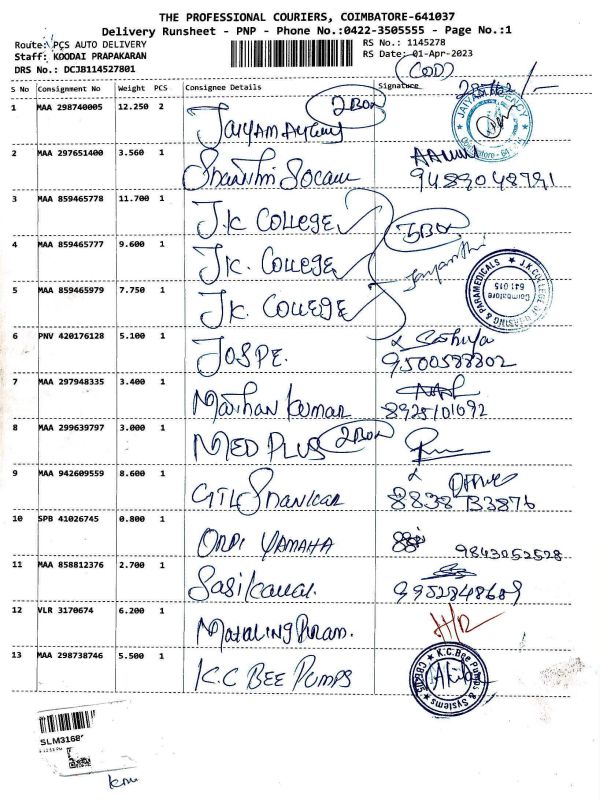 THE PROFESSIONAL COURIERS, COIMBATORE-641037
Delivery Runsheet - PNP - Phone No.:0422-3505555 - Page No.:1
Route: PCS AUTO DELIVERY
RS No.: 1145278
Staff: KOODAI PRAPAKARAN
RS Date: 01-Apr-2023
DRS No.: DCJB114527801
(COD)
S No Consignment No Weight PCS Consignee Details Signature
1 MAA 298740005 12.250 2 JAIYAM AGENCY 2 BOX
JAIYAM AGENCY
Coimbatore - 641
2 MAA 297651400 3.560 1 Shanthi Socail
3 MAA 859465778 11.700 1 J.K COLLEGE
3 BOX
4 MAA 859465777 9.600 1 JK. COLLEGE Jayanthi
J.K.COLLEGE OF NURSING & PARAMEDICALS
Coimbatore
641 015
5 MAA 859465979 7.750 1 JK. COLLEGE
6 PNV 420176128 5.100 1 JOSPE.
9500588802
7 MAA 297948335 3.400 1 Mathan Kumar 8925101692
8 MAA 299639797 3.000 1 MED PLUS 2 BOX
9 MAA 942609559 8.600 1 GTL Shankar
10 SPB 41026745 0.800 1 ORPI YAMAHA 9843052528
11 MAA 858812376 2.700 1 Sasikala.
12 VLR 3170674 6.200 1
13 MAA 298738746 5.500 1 K.C BEE PUMPS
K.C.Bee Pumps & Systems